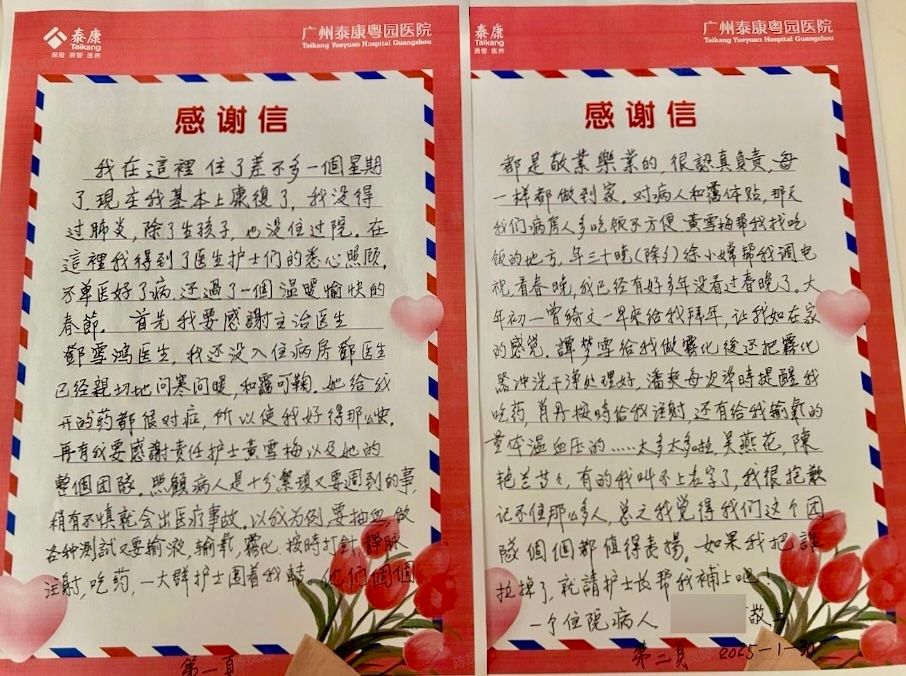 泰康
Taikang
保险 资管 医养
广州泰康粤园医院
Taikang Yueyuan Hospital Guangzhou
感谢信
我在這裡住了差不多一個星期
了,現在我基本上康復了,我没得
过肺炎,除了生孩子,也没住过院。在
這裡我得到了医生护士们的悉心照顾,
不单医好了病,还過了一個温暖愉快的
春節。首先我要感謝主治医生
鄧雪鴻医生,我还没入住病房鄧医生
已经親切地问寒问暖,和靄可鞠。她给我
开的药都很对症,所以使我好得那么快。
再有我要感謝责任护士黄雪梅以及她的
整個团隊。照顧病人是十分繁瑣又要週到的事,
稍有不慎就会出医疗事故。以我为例,要抽血,做
各种测試又要输液,输氧,霧化,按時打針,靜脈
注射,吃药,一大群护士围着我轉,他们個個
第一頁
泰康
Taikang
保险 资管 医养
广州泰康粤园医院
Taikang Yueyuan Hospital Guangzhou
感谢信
都是敬業樂業的,很認真負責,每
一样都做到家。对病人和靄体贴,那天
我们病房人多吃饭不方便,黄雪梅帮我找吃
饭的地方,年三十晚(除夕)徐小嬋帮我调电
視看春晚,我已经有好多年没看过春晚了。大
年初一曾綺文一早來给我拜年,让我如在家
的感觉。譚梦雪给我做霧化後还把霧化
器冲洗干淨处理好,潘爽每次準時提醒我
吃药,肖丹按時给我注射,还有给我输氧的
量体温血压的……太多太多啦,吴燕花,陳
艳兰等々,有的我叫不上名字了,我很抱歉
记不住那么多人,总之我觉得我们这个团
隊個個都值得表揚,如果我把誰
拉掉了,就請护士长帮我補上吧!
一个住院病人 敬上
第二頁 2025-1-30